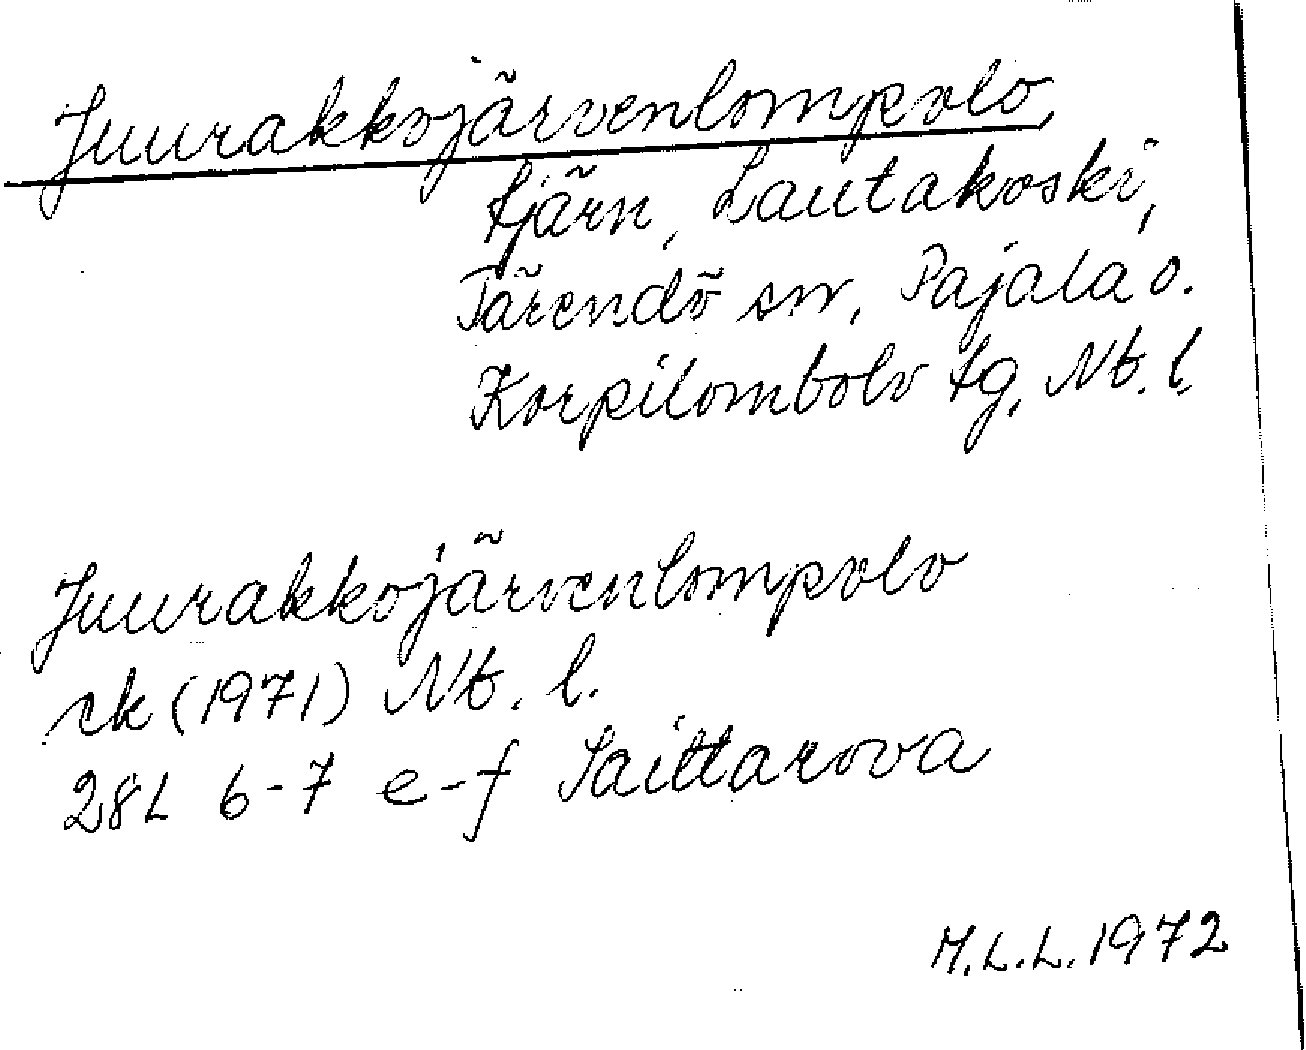 Juurakkojärvenlompolo,
tjärn, Lautakoski,
Tärendö sn, Pajala o.
Korpilombolo tg, Nb. l.
Juurakkojärvenlompolo
ek (1971) Nb. l.
28L 6-7 e-f Saittarova
M.L.L. 1972